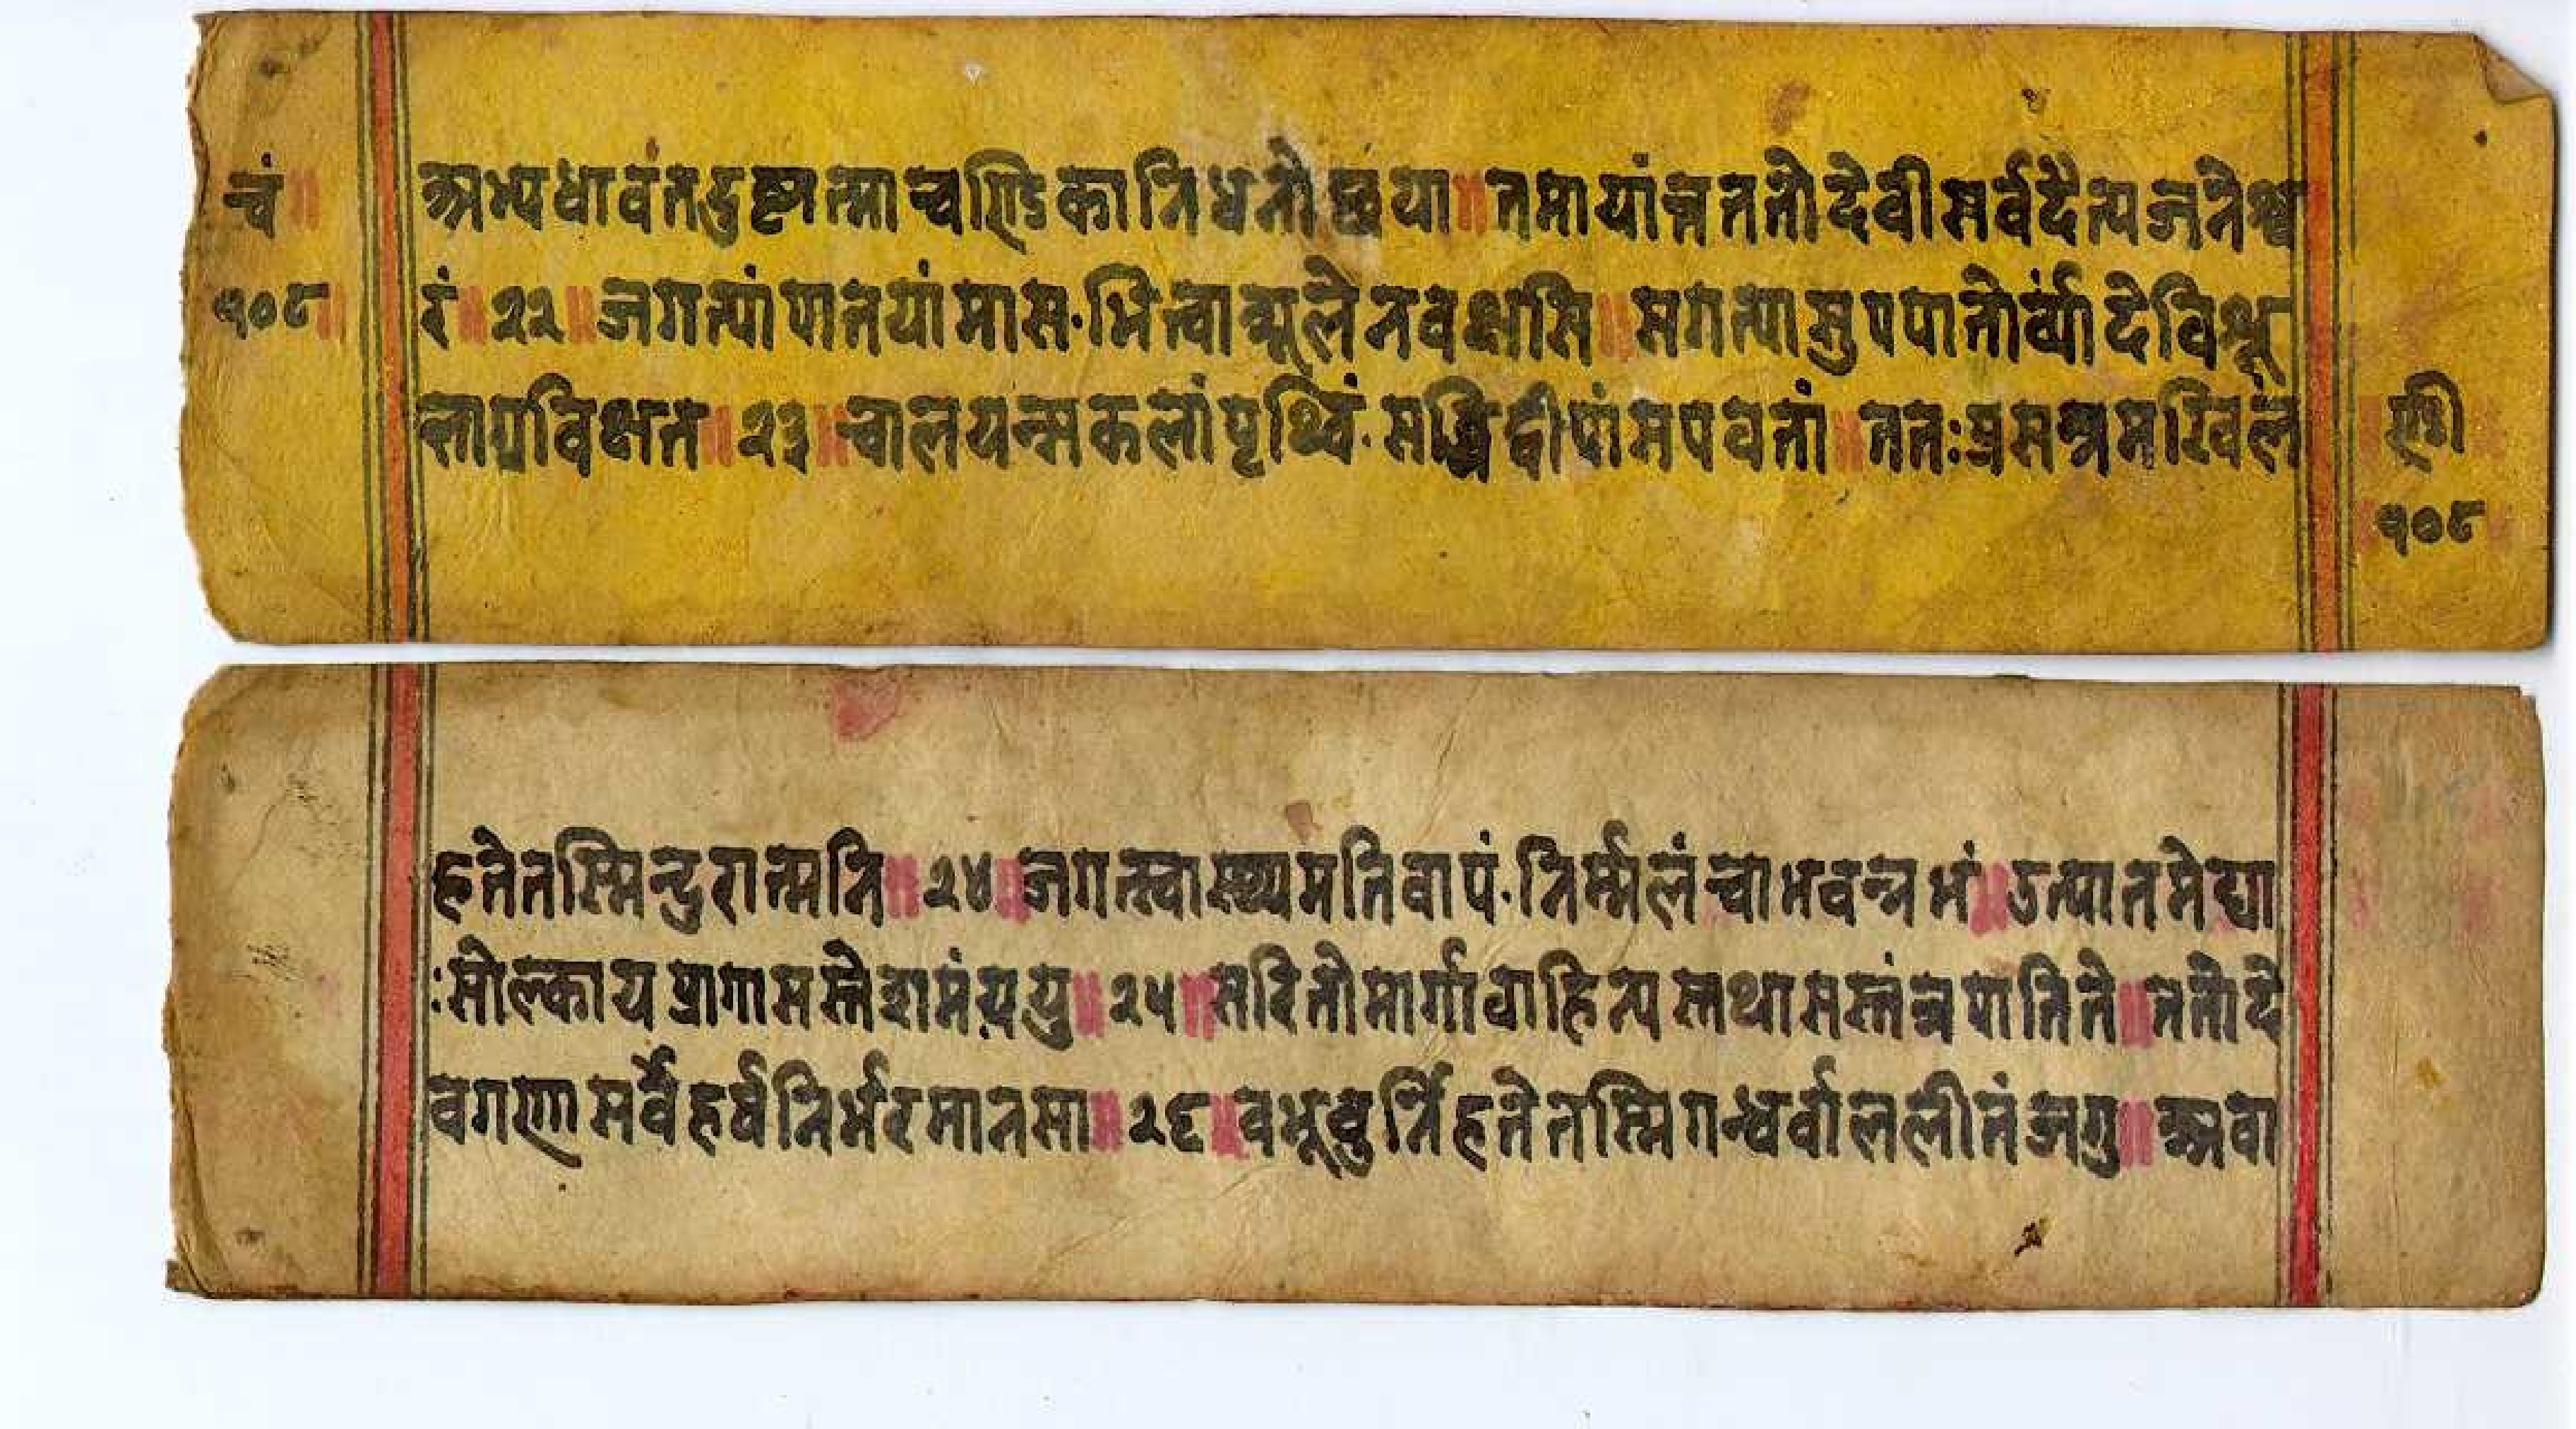 चं॥
१०८॥
अभ्यधावंतदुष्टात्माचण्डिकानिधनेछया॥तमायांन्नततोदेवीसर्वदैत्यजनेश्व
रं॥२२॥जगत्यांपातयांमास·भित्वाशूलेनवक्षसि॥सगत्यासुपपातोर्व्यांदेविशू
लाग्रविक्षत॥२३॥चालयन्सकलांपृथ्विं·सब्धिद्वीपांसपवतां॥ततःप्रसन्नमखिलं
ण्डी
१०८
हतेतस्मिन्दुरात्मनि॥२४॥जगत्स्वास्थ्यमतिवापं·निर्म्मलंचाभवन्नभं॥उत्पातमेघा
ःसोल्कायप्रागासस्तेशमंययु॥२५॥सरितोमार्गावाहित्यस्तथासस्तंत्रपातिते॥ततोदे
वगणासर्वेहर्षनिर्भरमानसा॥२६॥वभूवुर्निहतेतस्मिगन्धर्वाललीतंजगु॥अवा